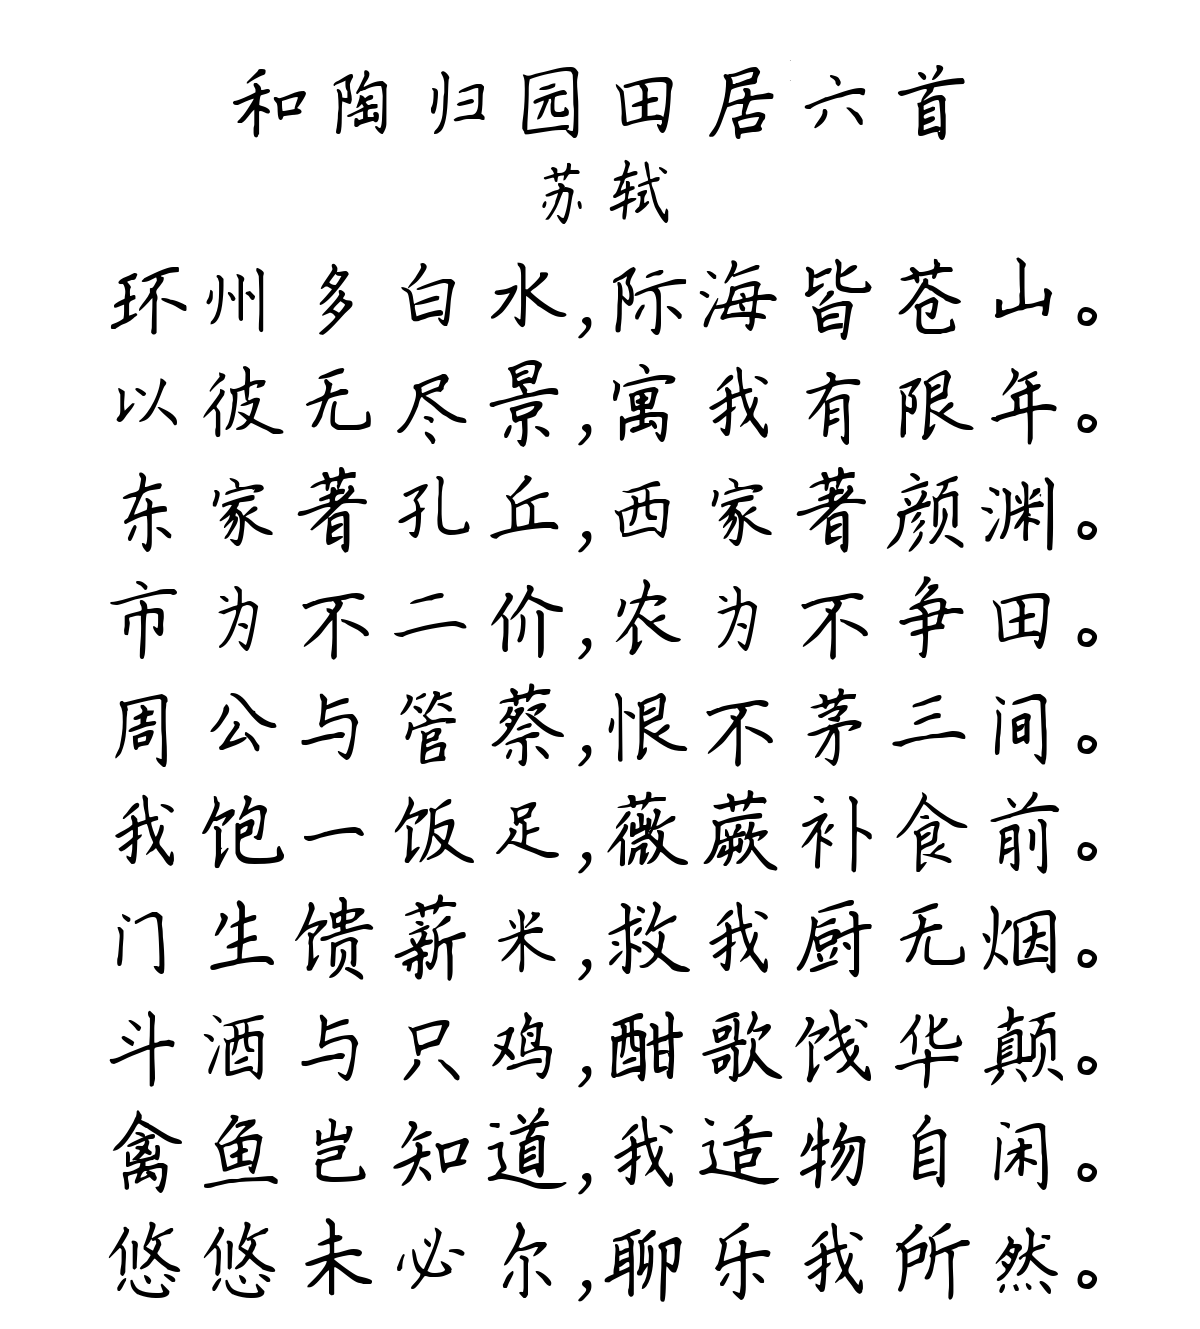 和陶归园田居六首
苏轼
环州多白水,际海皆苍山。
以彼无尽景,寓我有限年。
东家著孔丘,西家著颜渊。
市为不二价,农为不争田。
周公与管蔡,恨不茅三间。
我饱一饭足,薇蕨补食前。
门生馈薪米,救我厨无烟。
斗酒与只鸡,酣歌饯华颠。
禽鱼岂知道,我适物自闲。
悠悠未必尔,聊乐我所然。